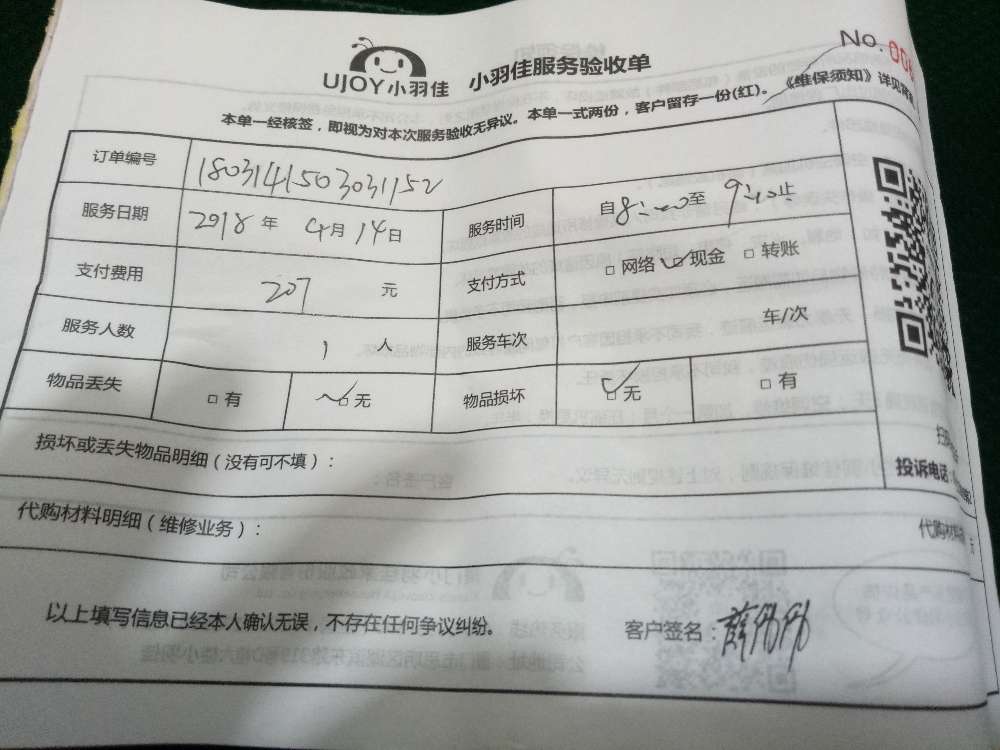 UJOY小羽佳 小羽佳服务验收单
No.006
本单一经核签，即视为对本次服务验收无异议。本单一式两份，客户留存一份(红)。《维保须知》详见背
订单编号 1803141503031152
服务日期 2018 年 4月 14日 服务时间 自8:00至 9:00止
支付费用 207 元 支付方式 □网络 现金 □转账
服务人数 1 人 服务车次 车/次
物品丢失 □有 □无 物品损坏 □无 □有
损坏或丢失物品明细（没有可不填）：
投诉电话
代购材料明细（维修业务）： 代购材
以上填写信息已经本人确认无误，不存在任何争议纠纷。 客户签名：